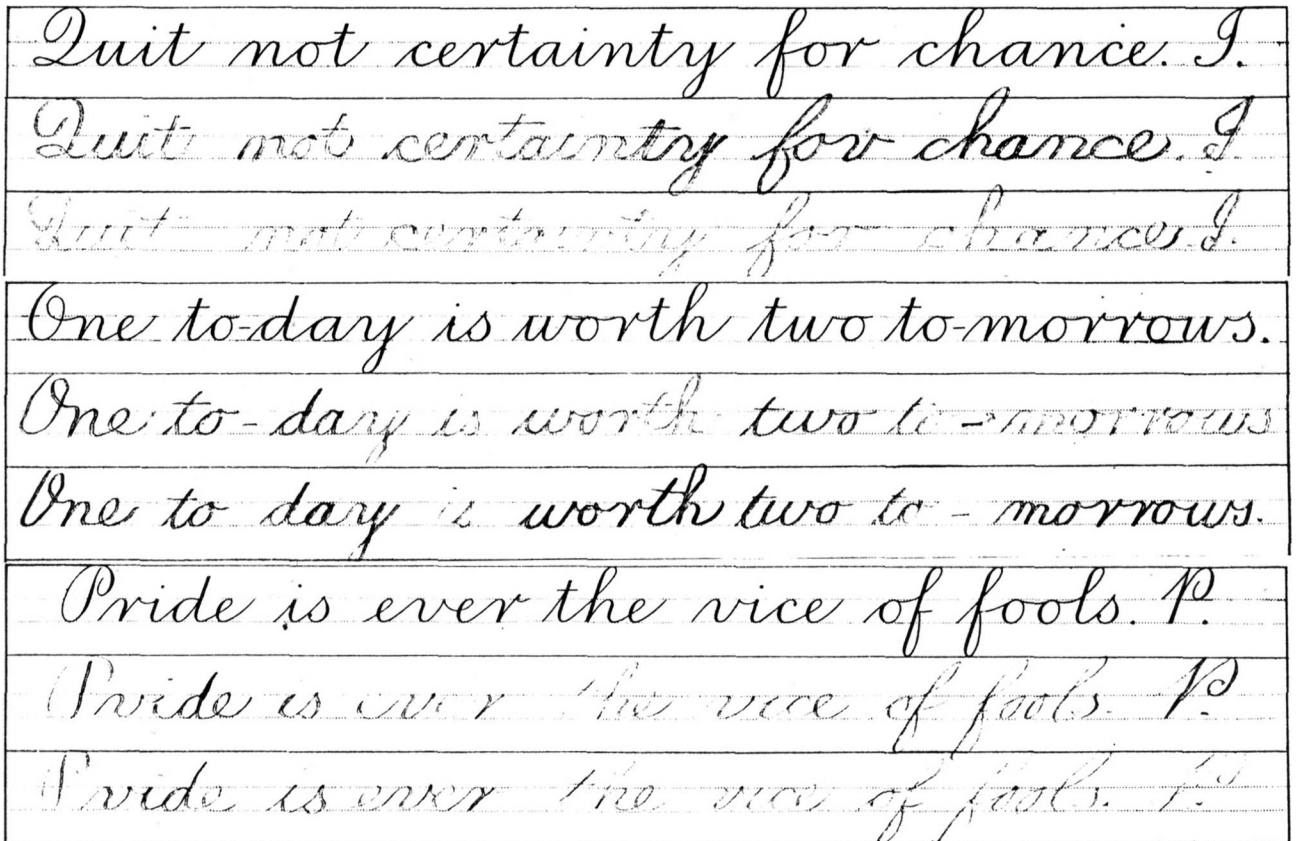 Quit not certainty for chance. I.
Quit not certainty for chance. I
Quit not certainty for chance I.
One to-day is worth two to-morrows.
One to-day is worth two to-morrows
One to day is worth two to-morrows.
Pride is ever the vice of fools. P.
Pride is ever the vice of fools. P.
Pride is ever the vice of fools. P.